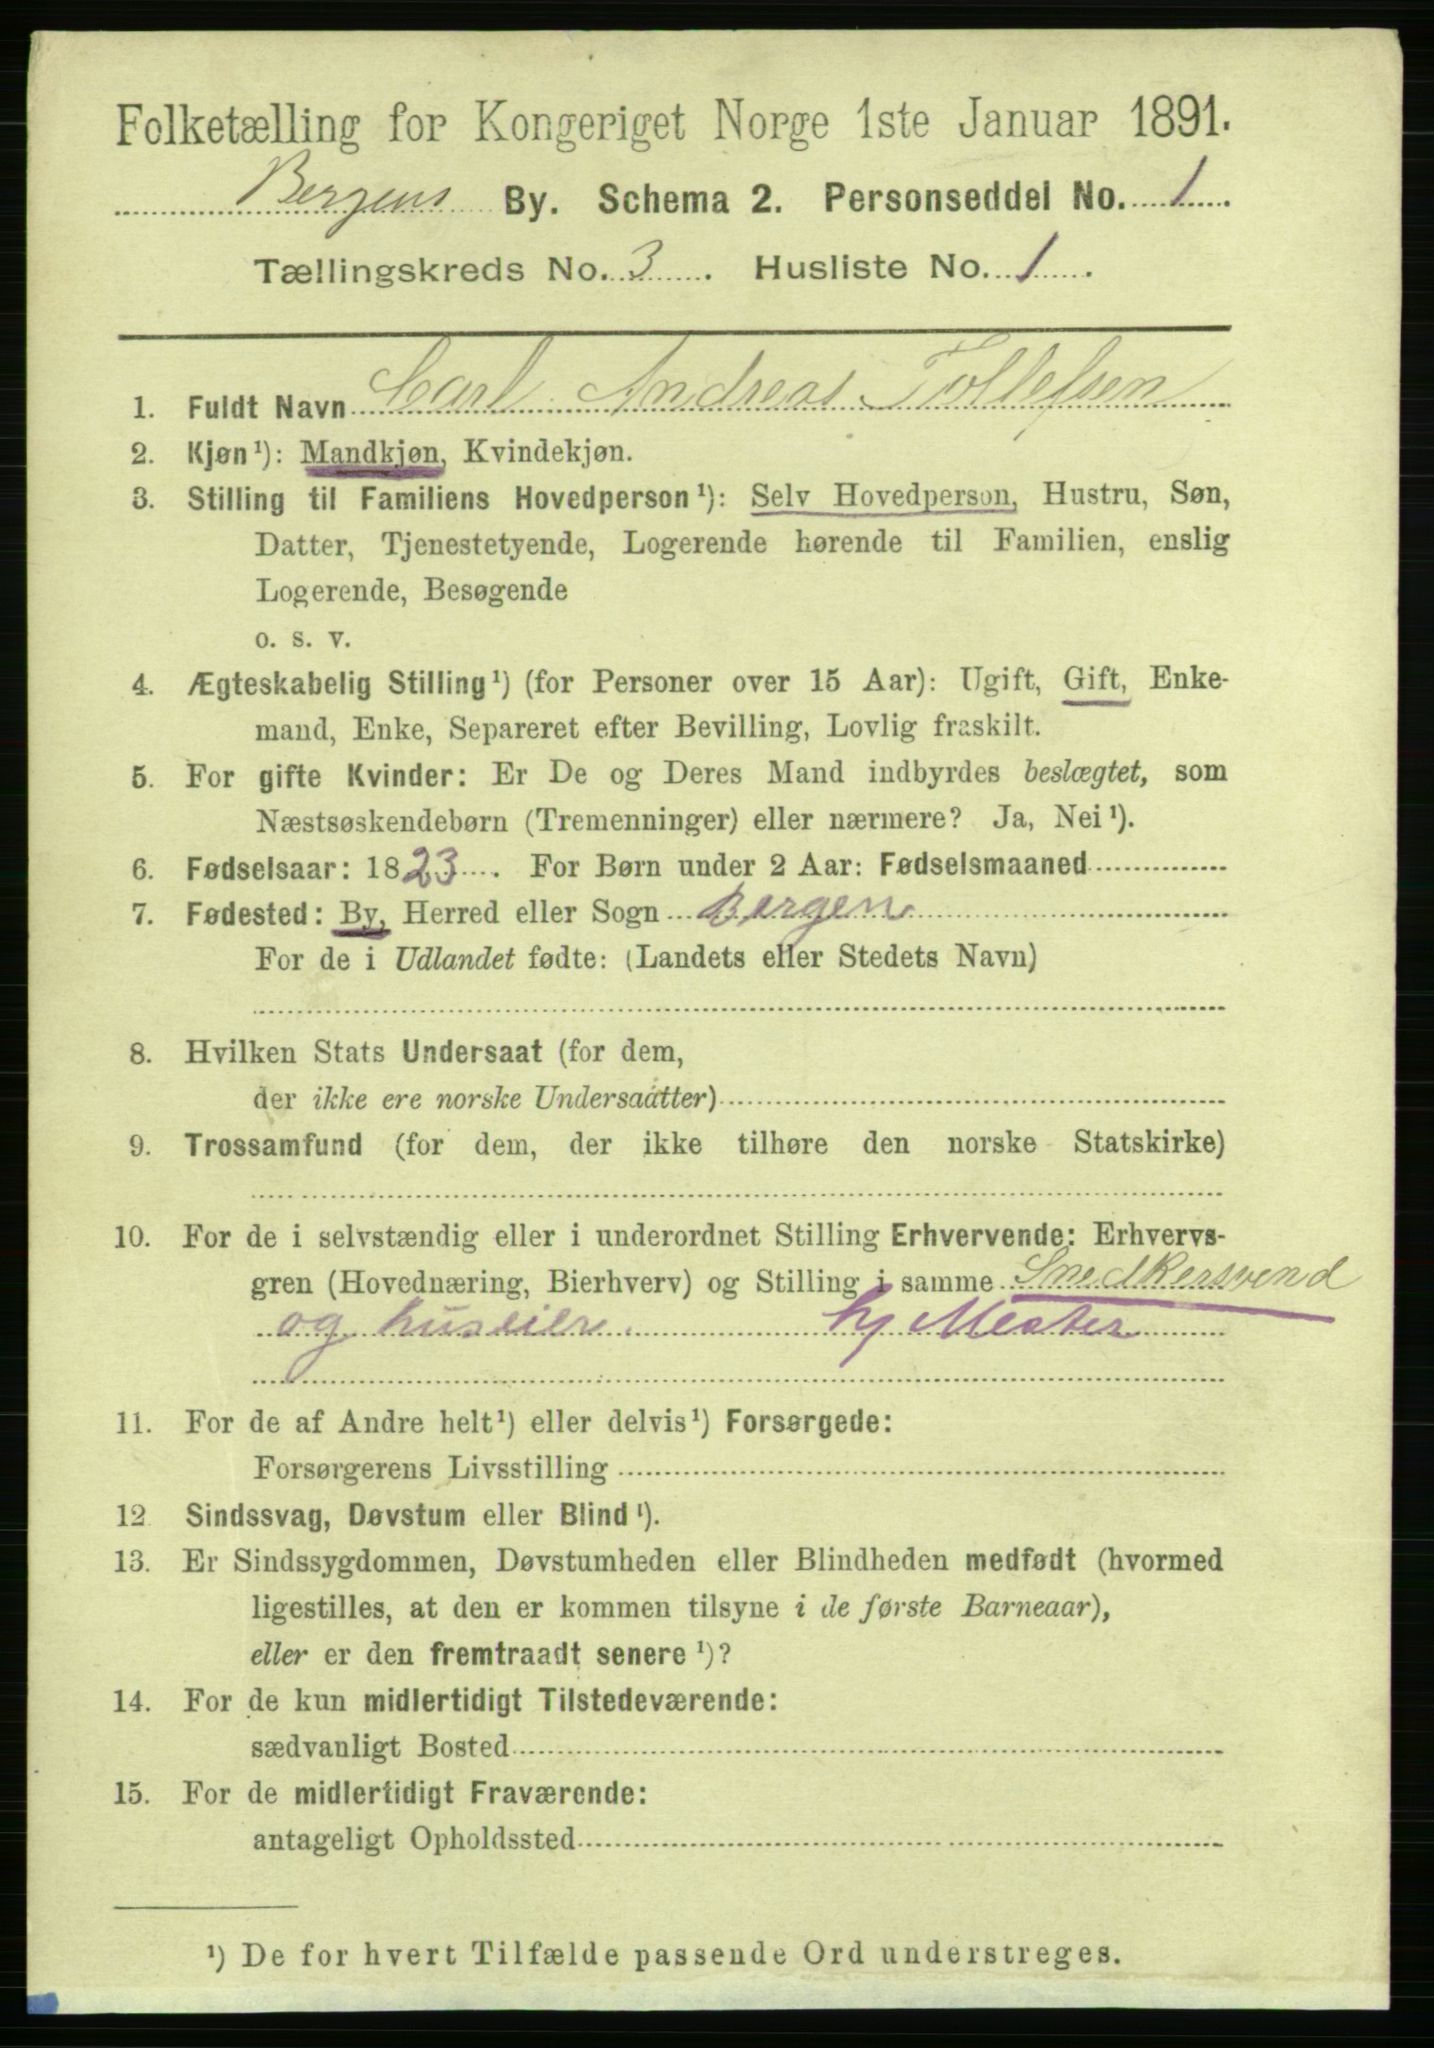 Folketælling for Kongeriget Norge 1ste Januar 1891.
Bergens By. Schema 2. Personseddel No. 1.
Tællingskreds No. 3. Husliste No. 1.
1. Fuldt Navn Carl Andreas Tollefsen
2. Kjøn¹): Mandkjøn, Kvindekjøn.
3. Stilling til Familiens Hovedperson¹): Selv Hovedperson, Hustru, Søn,
Datter, Tjenestetyende, Logerende hørende til Familien, enslig
Logerende, Besøgende
o. s. v.
4. Ægteskabelig Stilling¹) (for Personer over 15 Aar): Ugift, Gift, Enke-
mand, Enke, Separeret efter Bevilling, Lovlig fraskilt.
5. For gifte Kvinder: Er De og Deres Mand indbyrdes beslægtet, som
Næstsøskendebørn (Tremenninger) eller nærmere? Ja, Nei¹).
6. Fødselsaar: 1823. For Børn under 2 Aar: Fødselsmaaned
7. Fødested: By, Herred eller Sogn Bergen
For de i Udlandet fødte: (Landets eller Stedets Navn)
8. Hvilken Stats Undersaat (for dem,
der ikke ere norske Undersaatter)
9. Trossamfund (for dem, der ikke tilhøre den norske Statskirke)
10. For de i selvstændig eller i underordnet Stilling Erhvervende: Erhvervs-
gren (Hovednæring, Bierhverv) og Stilling i samme Snedkersvend
og huseier. hj Mester
11. For de af Andre helt¹) eller delvis¹) Forsørgede:
Forsørgerens Livsstilling
12. Sindssvag, Døvstum eller Blind¹).
13. Er Sindssygdommen, Døvstumheden eller Blindheden medfødt (hvormed
ligestilles, at den er kommen tilsyne i de første Barneaar),
eller er den fremtraadt senere¹)?
14. For de kun midlertidigt Tilstedeværende:
sædvanligt Bosted
15. For de midlertidigt Fraværende:
antageligt Opholdssted
¹) De for hvert Tilfælde passende Ord understreges.